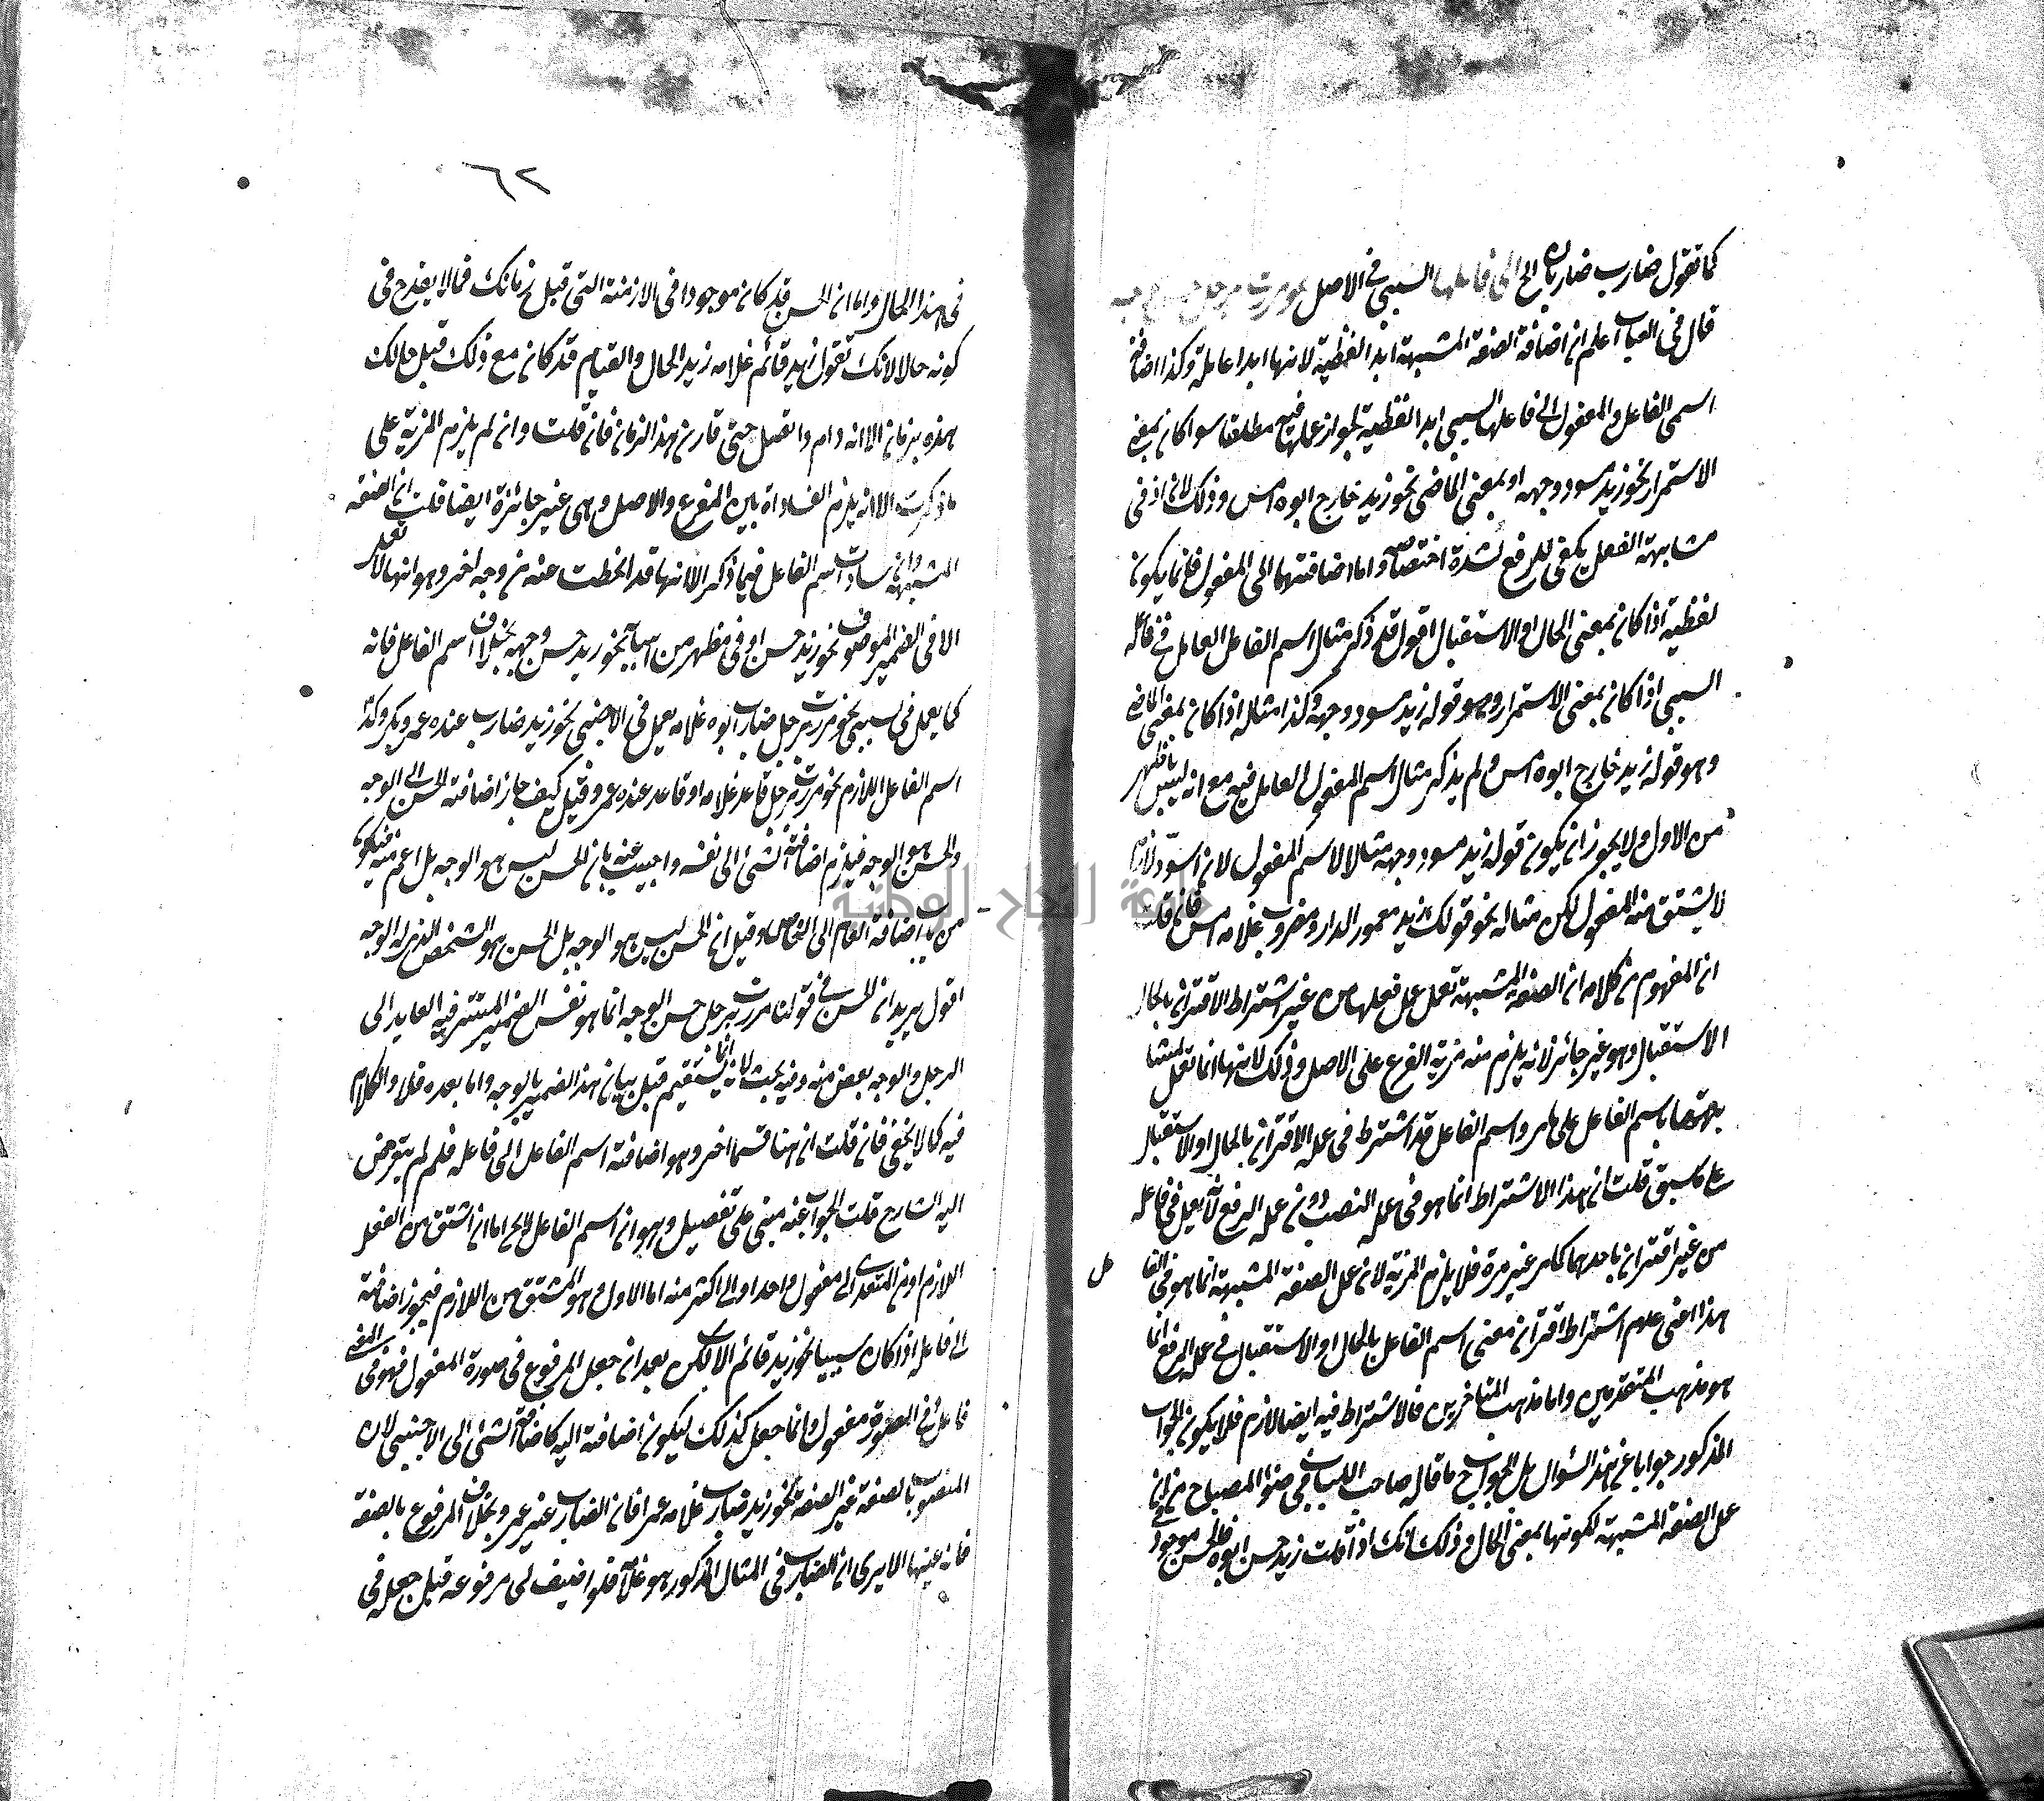 كما تقول ضارب ضاربان الخ الى فاعلها السببى فى الاصل نحو مررت برجل حسن وجهه
قال فى العباب اعلم ان اضافة الصفة المشبهة ابدا لفظية لانها ابدا عاملة وكذا اضافة
اسمى الفاعل والمفعول الى فاعلها السببى ابدا لفظية لجواز عملها فيه مطلقا سوا كان بمعنى
الاستمرار نحو زيد مسود وجهه او بمعنى الماضى نحو زيد خارج ابوه امس وذلك لان ادنى
مشابهة الفعل يكفى للرفع لشدة اختصاصه واما اضافتهما الى المفعول فانما يكون
لفظية اذا كان بمعنى الحال او الاستقبال اقول قد ذكر مثال اسم الفاعل العامل فى فاعله
السببى اذا كان بمعنى الاستمرار وهو قوله زيد مسود وجهه وكذا مثاله اذا كان بمعنى الماضى
وهو قوله زيد خارج ابوه امس ولم يذكر مثال اسم المفعول العامل فيه مع انه ليس باظهر
من الاول ولا يجوز ان يكون قوله زيد مسود وجهه مثالا لاسم المفعول لان اسود لازم
لا يشتق منه المفعول لكن مثاله نحو قولك زيد معمور الدار ومضروب غلامه امس فان قلت
ان المفهوم من كلامه ان الصفة المشبهة تعمل عمل فعلها من غير اشتراط الاقتران بالحال
الاستقبال وهو غير جائز لانه يلزم منه مزية الفرع على الاصل وذلك لانها انما تعمل لمشا
بهتها باسم الفاعل على مامر واسم الفاعل قد اشترط فى عمله الاقتران بالحال او الاستقبال
على ماسبق قلت ان هذا الاشتراط انما هو فى عمله النصب دون عمله الرفع لانه يعمل فى فاعله
من غير اقتران باحدهما كما مر غير مرة فلا يلزم المزية لان عمل الصفة المشبهة انما هو فى الفا
عل
هذا اعنى عدم اشتراط اقتران معنى اسم الفاعل بالحال او الاستقبال فى عمله الرفع انما
هو مذهب المتقدمين واما مذهب المتاخرين فالاشتراط فيه ايضا لازم فلا يكون الجواب
المذكور جوابا عن هذا السؤال بل الجواب ح ما قال صاحب اللباب فى ضوء المصباح من ان
عمل الصفة المشبهة لكونها بمعنى الحال وذلك انك اذا قلت زيد حسن ابوه فالحسن موجود
٦٢
فى هذا الحال واما ان الحسن قد كان موجودا فى الازمنة التى قبل زمانك فمما لا يقدح فى
كونه حالا لانك تقول زيد قائم غلامه زيد الحال والقيام قد كان مع ذلك قبل حالك
هذه بزمان الا انه دام واتصل حتى قارن هذا الزمان فان قلت وان لم يلزم المزية على
ماذكرت الا انه يلزم المساواة بين الفرع والاصل وهى غير جائزة ايضا قلت ان الصفة
المشبهة وان ساوت اسم الفاعل فيما ذكر الا انها قد انحطت عنه من وجه اخر وهو انها لا تعمل
الا فى الضمير الموصوف نحو زيد حسن او فى مظهر من اسبابه نحو زيد حسن وجهه بخلاف اسم الفاعل فانه
كما يعمل فى سببى نحو مررت برجل ضارب ابوه غلامه يعمل فى الاجنبى نحو زيد ضارب عنده عمرو بكر وكذا
اسم الفاعل اللازم نحو مررت برجل قاعد غلامه او قاعد عنده عمرو قيل كيف جاز اضافة الحسن الى الوجه
والحسن هو الوجه فيلزم اضافة الشئ الى نفسه واجيب عنه بان الحسن ليس هو الوجه بل اعم منه فيكون
من باب اضافة العام الى الخاص وقيل ان الحسن ليس هو الوجه بل الحسن هو الشخص الذى له الوجه
اقول يريد ان الحسن فى قولنا مررت برجل حسن الوجه انما هو نفس الضمير المستتر فيه العايد الى
الرجل والوجه بعض منه وفيه بحث لانه انما يستقيم قبل بيان هذا الضمير بالوجه واما بعده فلا والكلام
فيه كما لا يخفى فان قلت ان هنا قسما اخر وهو اضافة اسم الفاعل الى فاعله فلم لم يتعرض
اليه الشارح قلت الجواب عنه مبنى على تفصيل وهو ان اسم الفاعل لايخ اما ان اشتق من الفعل
اللازم او من المتعدى الى مفعول واحد او الى اكثر منه اما الاول وهو المشتق من اللازم فيجوز اضافته
الى فاعله اذا كان سببيا نحو زيد قائم الاب لكن بعد ان جعل المرفوع فى صورة المفعول فهو فى المعنى
فاعل فى الصورة مفعول وانما جعل كذلك ليكون اضافته اليه كاضافة الشئ الى الاجنبى لان
المنصوب بالصفة غير الصفة نحو زيد ضارب غلامه عمرا فان الضارب غير عمرو بخلاف المرفوع بالصفة
فانه عينها الا يرى ان الضارب فى المثال المذكور هو غلامه فلو اضيف الى مرفوعه قبل جعله فى